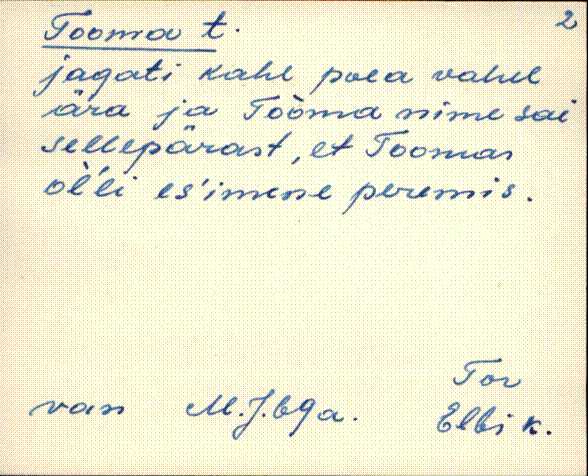 Tooma t. 2
jagati kahe poea vahel
ära ja Tòòma nime sai
sellepärast, et Toomas
ol̀'li es'imene peremis.
Tor
van M.J. 69a. Elbi k.